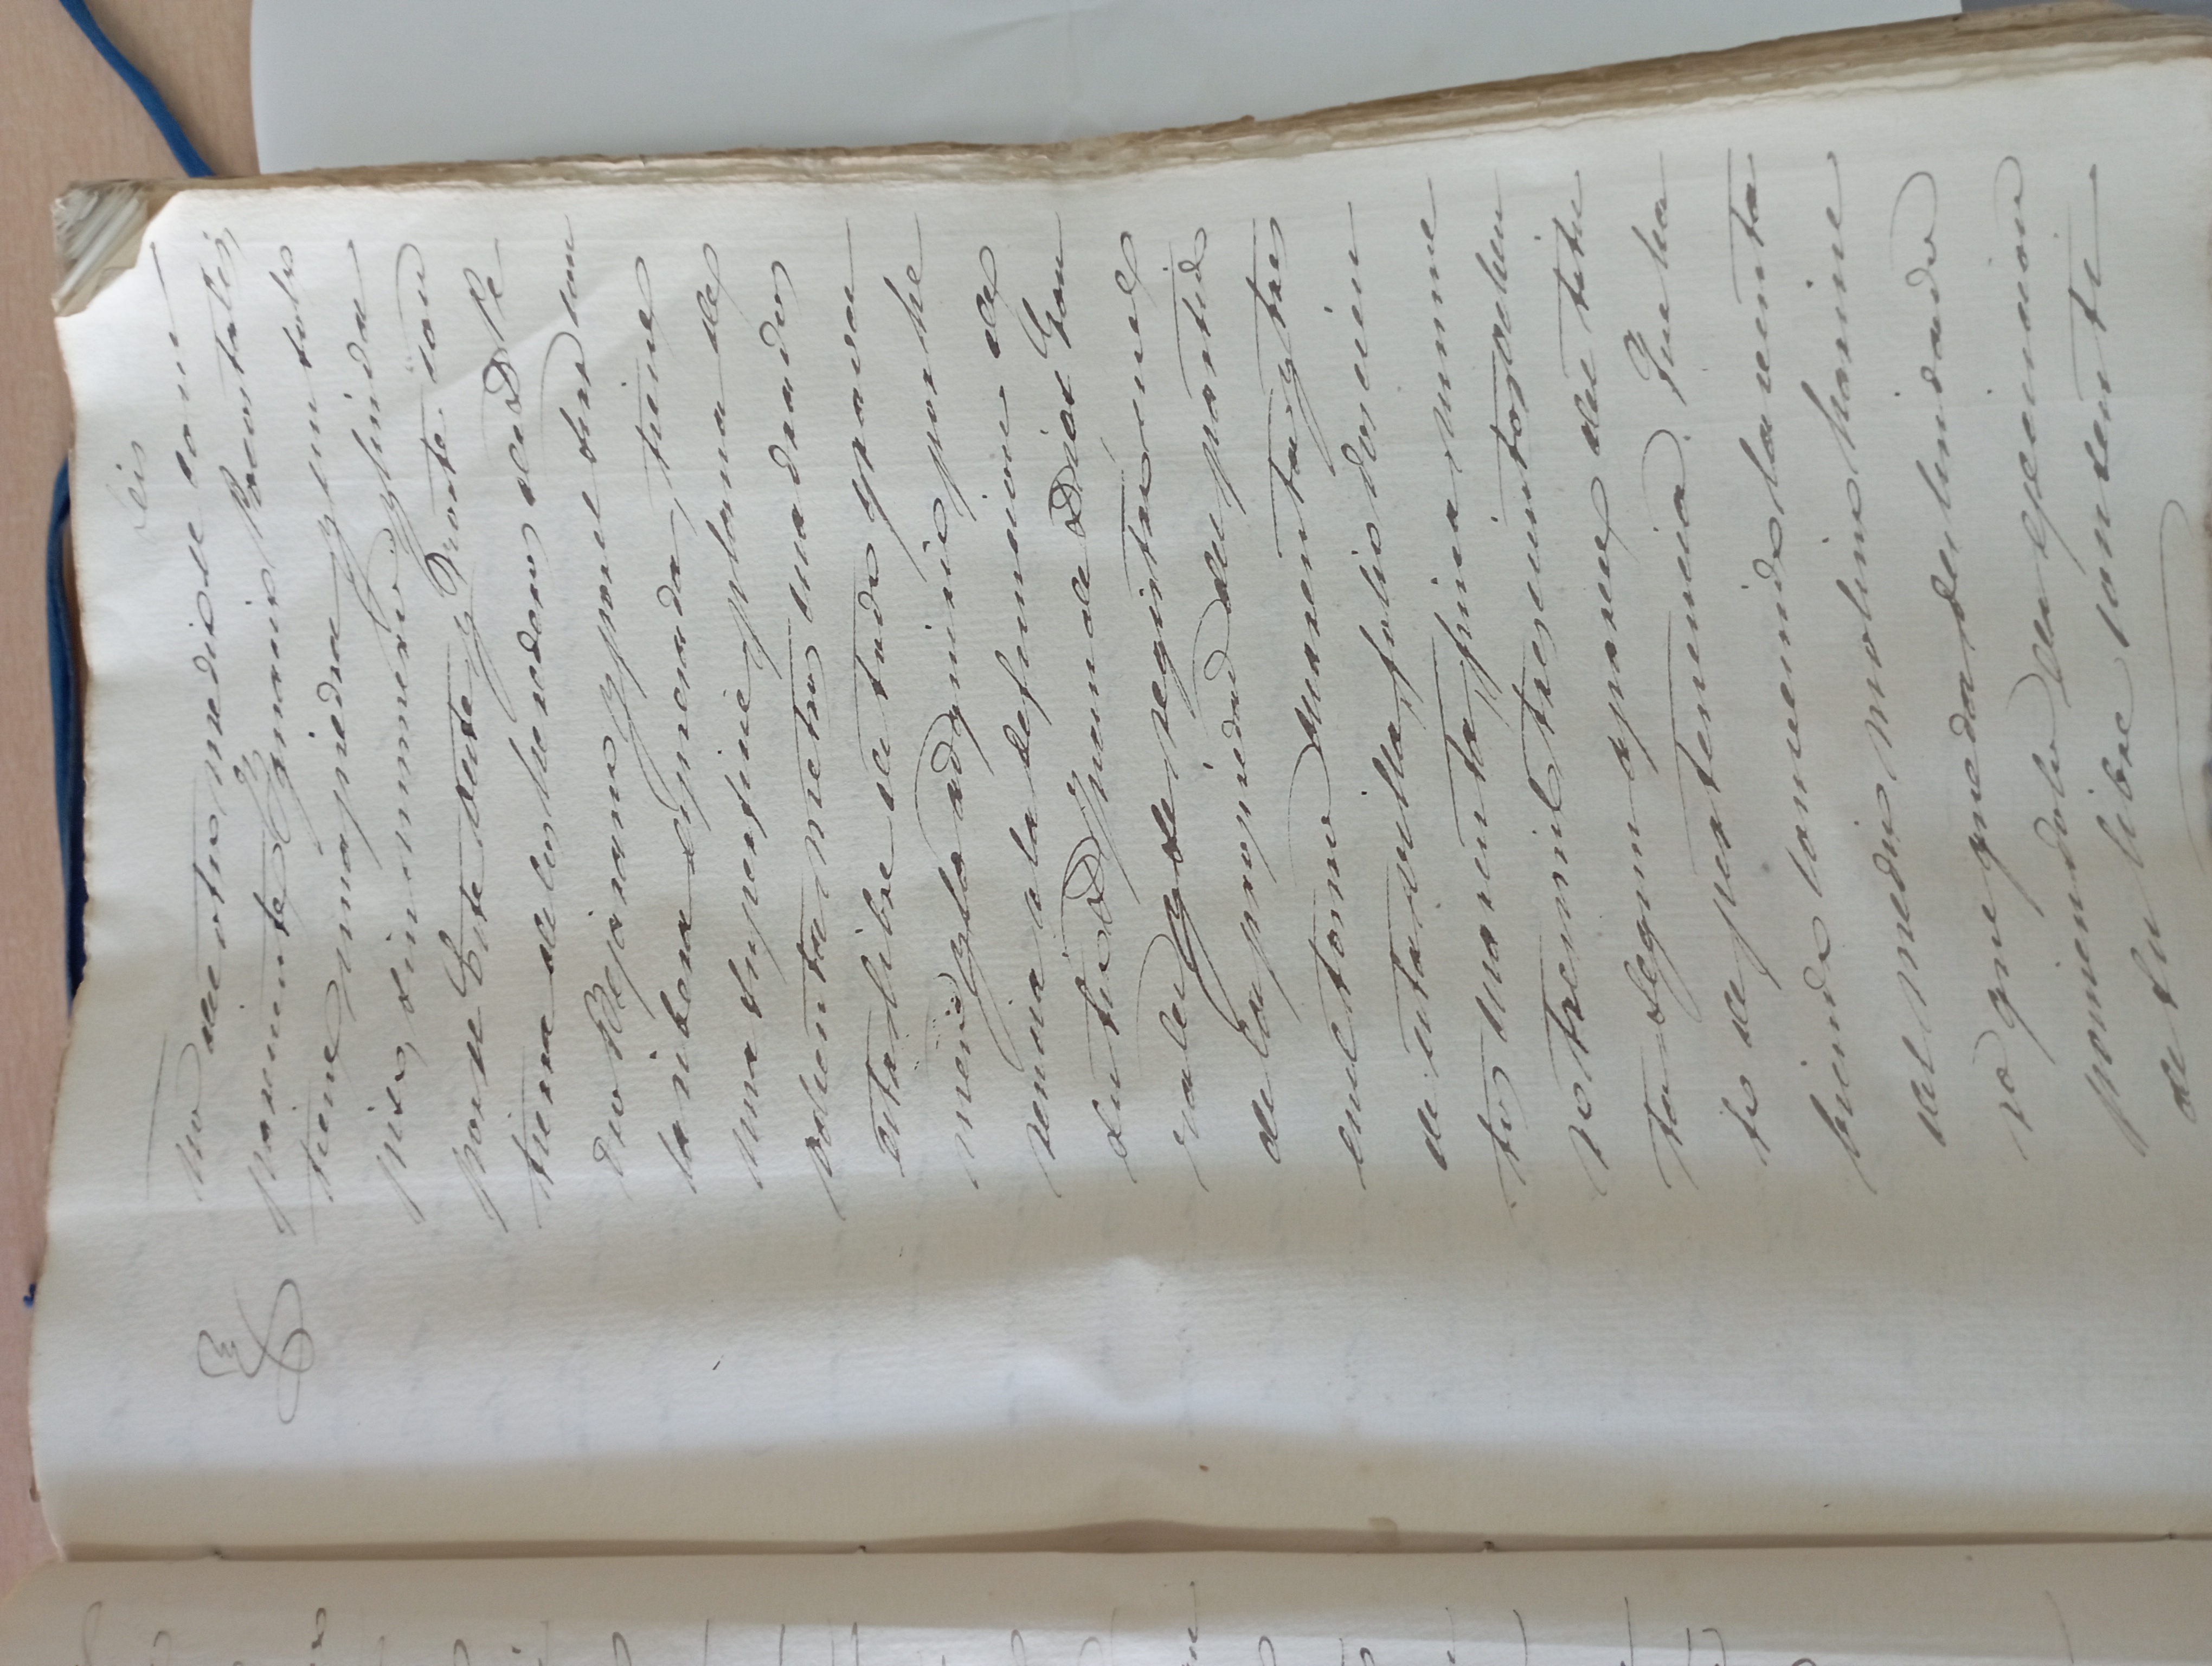 Seis
no del otro medio el com
pareciente Ygnacio Recostales,
tiene una piedra y un solo
piso, sin numero y linda
por el Este Oeste y Norte con
tierra de los herederos de D Pe
dro Bejarano y por el sur con
la ribera espresada, tiene
una superficie plana de
ochenta metros cuadrados
esta libre de todo grava
men y lo adquirió por he
rencia a la defuncion de
su tio D Juan de Dios Gon
zalez y se registró en el
de la propiedad del partido
en el tomo cuarenta y tres
de esta villa, folio doscien
tos cuarenta, finca nume
ro tres mil trescientos ochen
ta segun aparece del titu
lo de pertenencia. Que ha
biendo convenido la venta
del medio molino harine
ro que queda deslindado
poniendolo en ejecucion
de su libre consenti